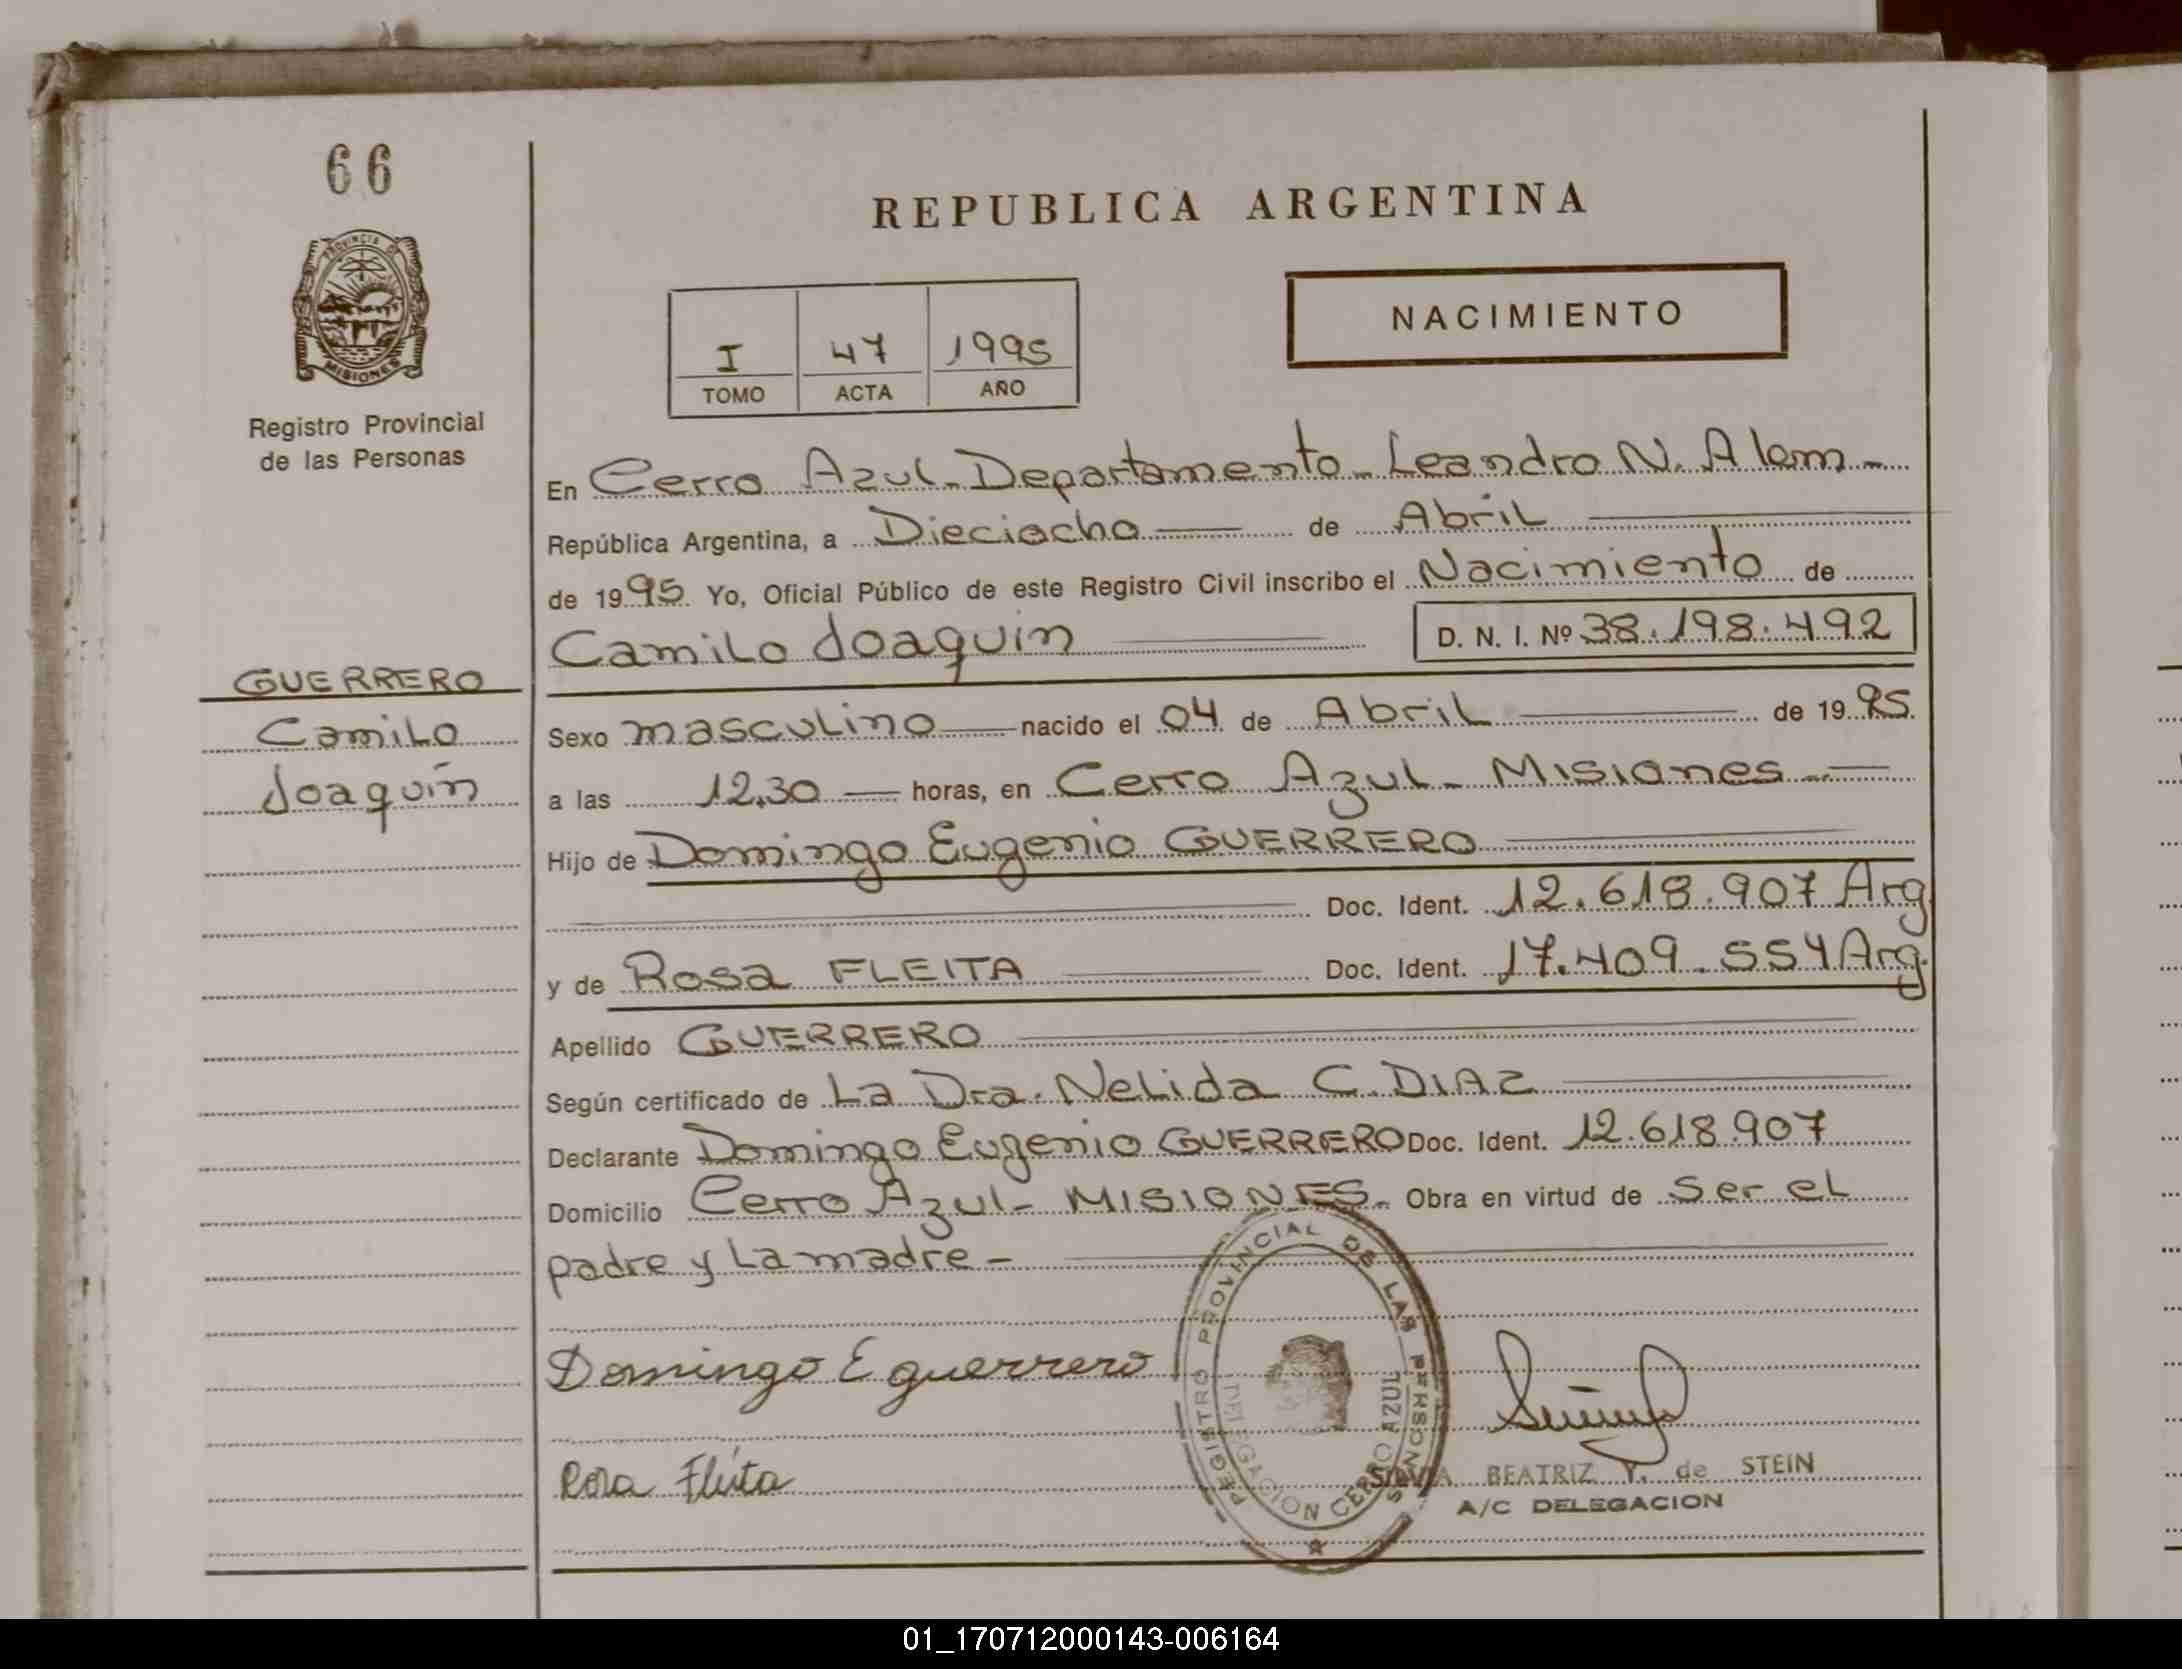 66
PROVINCIA DE
MISIONES
Registro Provincial
de las Personas
GUERRERO
Camilo
Joaquín
REPUBLICA ARGENTINA
NACIMIENTO
I 47 1995
TOMO ACTA AÑO
En Cerro Azul-Departamento-Leandro N. Alem-
República Argentina, a Dieciocho de Abril
de 1995 Yo, Oficial Público de este Registro Civil inscribo el Nacimiento de
Camilo Joaquín D. N. I. Nº 38.198.492
Sexo masculino nacido el 04 de Abril de 1995
a las 12,30 horas, en Cerro Azul- Misiones
Hijo de Domingo Eugenio GUERRERO
Doc. Ident. 12.618.907 Arg
y de Rosa FLEITA Doc. Ident. 17.409.554 Arg.
Apellido GUERRERO
Según certificado de La Dra. Nelida C. DIAZ
Declarante Domingo Eugenio GUERRERO Doc. Ident. 12.618.907
Domicilio Cerro Azul- MISIONES- Obra en virtud de ser el
padre y la madre-
Domingo E guerrero
Rosa Fleita
REGISTRO PROVINCIAL DE LAS PERSONAS
DELEGACION CERRO AZUL
SILVIA BEATRIZ Y. de STEIN
A/C DELEGACION
01_170712000143-006164